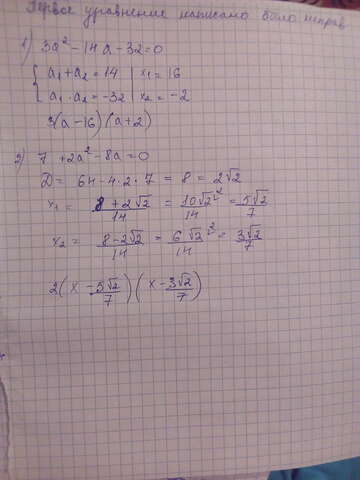 Первое уравнение написано было неправ
1) 3a² - 14a - 32 = 0
{ a₁ + a₂ = 14 | x₁ = 16
a₁ · a₂ = -32 | x₂ = -2
3(a - 16)(a + 2)
2) 7 + 2a² - 8a = 0
D = 64 - 4 · 2 · 7 = 8 = 2√2
x₁ = 8 + 2√2 / 14 = 10√2 / 14 = 5√2 / 7
x₂ = 8 - 2√2 / 14 = 6√2 / 14 = 3√2 / 7
2(x - 5√2 / 7)(x - 3√2 / 7)